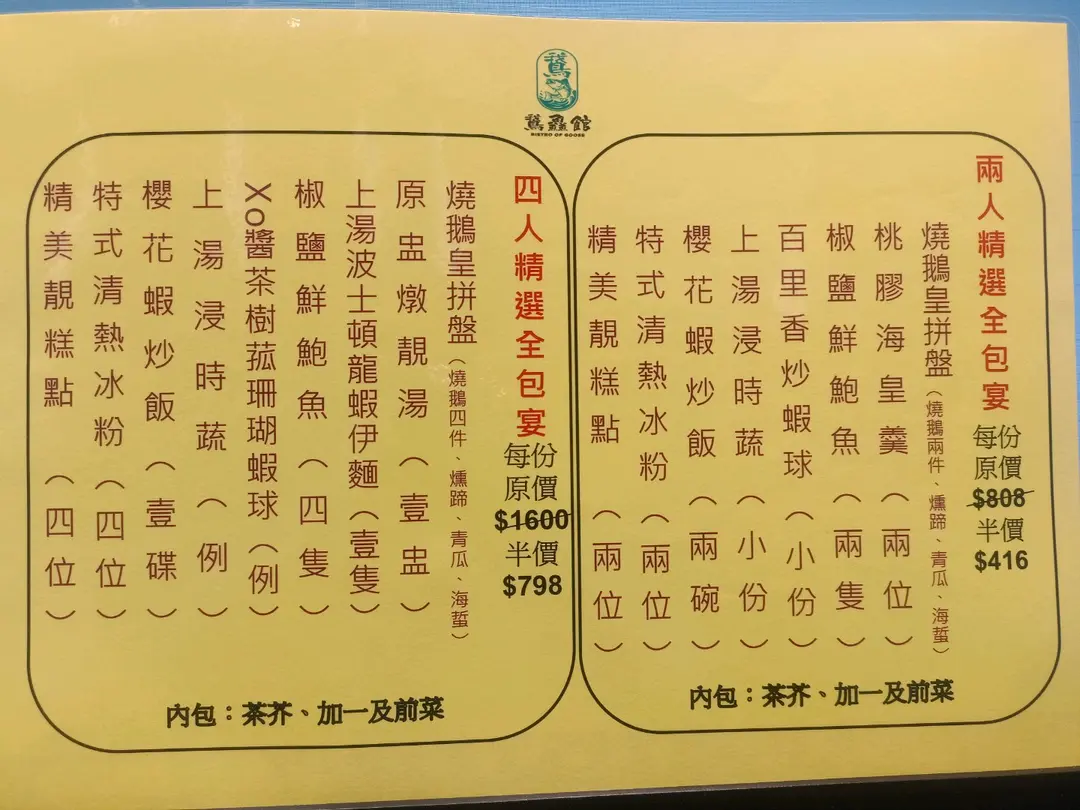 鵞
鵞鱻館
BISTRO OF GOOSE
兩人精選全包宴
每份
原價
$808
半價
$416
燒鵝皇拼盤（燒鵝兩件、燻蹄、青瓜、海蜇）
桃膠海皇羹（兩位）
椒鹽鮮鮑魚（兩隻）
百里香炒蝦球（小份）
上湯浸時蔬（小份）
櫻花蝦炒飯（兩碗）
特式清熱冰粉（兩位）
精美靚糕點（兩位）
內包：茶芥、加一及前菜
四人精選全包宴
每份
原價
$1600
半價
$798
燒鵝皇拼盤（燒鵝四件、燻蹄、青瓜、海蜇）
原盅燉靚湯（壹盅）
上湯波士頓龍蝦伊麵（壹隻）
椒鹽鮮鮑魚（四隻）
Xo醬茶樹菰珊瑚蝦球（例）
上湯浸時蔬（例）
櫻花蝦炒飯（壹碟）
特式清熱冰粉（四位）
精美靚糕點（四位）
內包：茶芥、加一及前菜